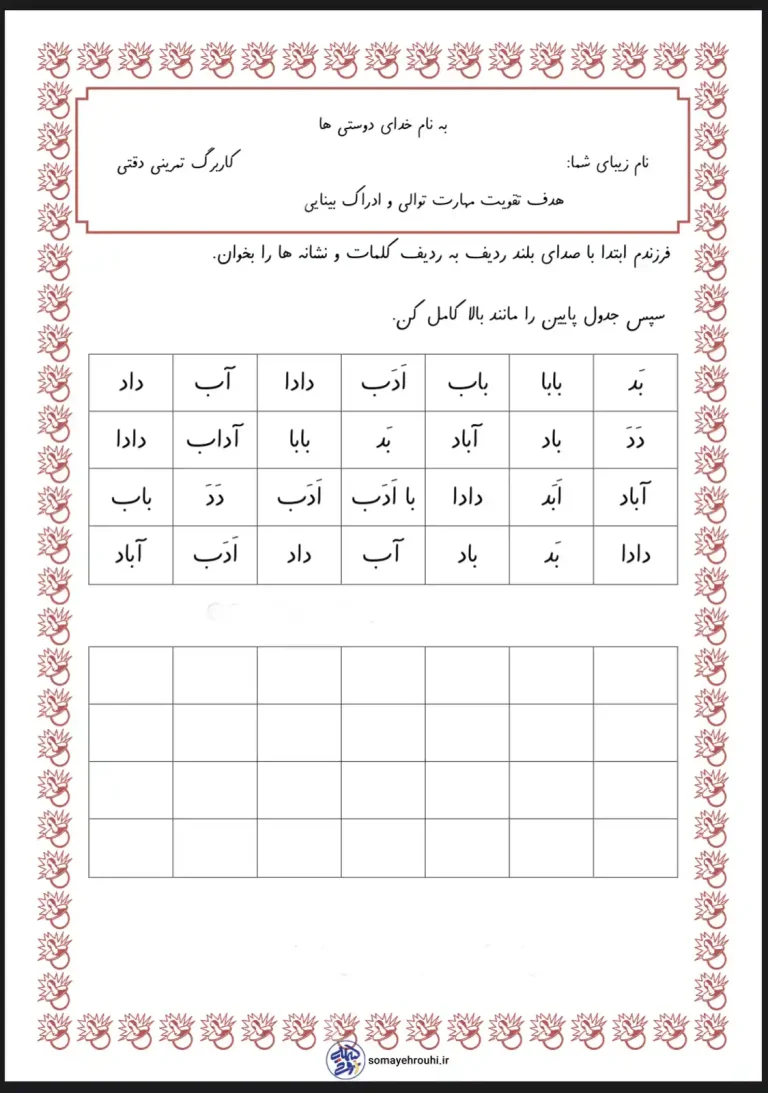 به نام خدای دوستی ها
نام زیبای شما: کاربرگ تمرینی دقتی
هدف تقویت مهارت توالی و ادراک بینایی
فرزندم ابتدا با صدای بلند ردیف به ردیف کلمات و نشانه ها را بخوان.
سپس جدول پایین را مانند بالا کامل کن.
بَد بابا باب اَدَب دادا آب داد
دَدَ باد آباد بَد بابا آداب دادا
آباد اَبَد دادا با اَدَب اَدَب دَدَ باب
دادا بَد باد آب داد اَدَب آباد
somayehrouhi.ir